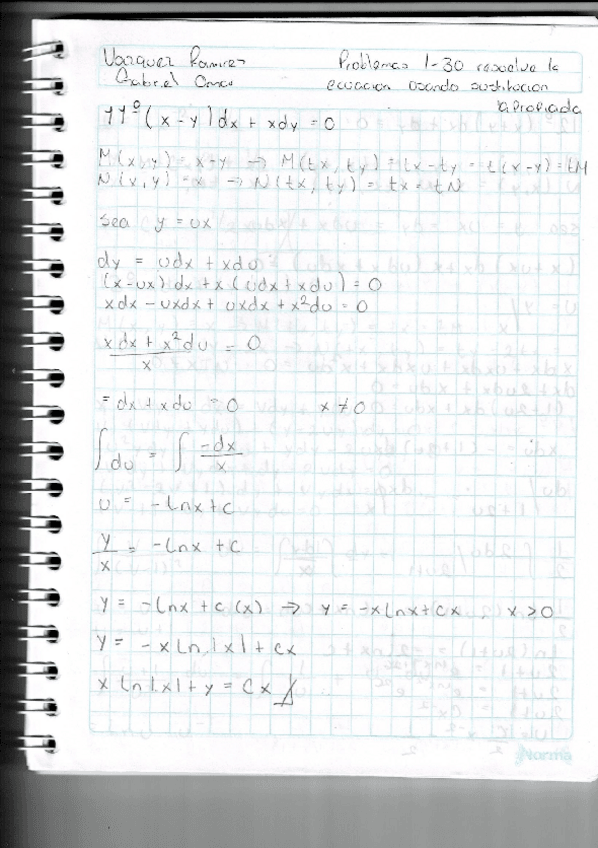 Vazquez Ramirez
Gabriel Omar
Problemas 1-30 resuelve la
ecuacion usando sustitucion
apropiada
11º (x-y)dx + xdy = 0
M(x,y) = x+y → M(tx, ty) = tx-ty = t(x-y) = tM
N(x,y) = x → N(tx, ty) = tx = tN
sea y = ux
dy = udx + xdu
(x-ux)dx + x(udx + xdu) = 0
xdx - uxdx + uxdx + x²du = 0
xdx + x²du = 0
x
= dx + xdu = 0 x ≠ 0
∫du = ∫ -dx
x
u = -lnx + c
y = -lnx + c
x
y = -lnx + c (x) ⇒ y = -xlnx + cx x > 0
y = -x ln|x| + cx
x ln|x| + y = cx
Norma